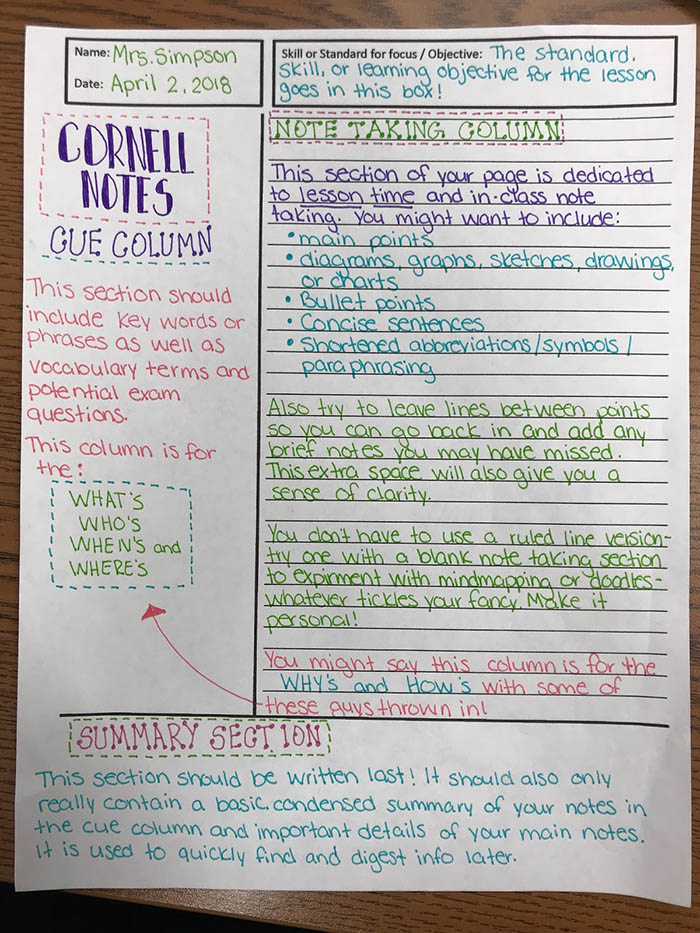 Name: Mrs. Simpson
Date: April 2, 2018
Skill or Standard for focus / Objective: The standard,
skill, or learning objective for the lesson
goes in this box!
CORNELL
NOTES
CUE COLUMN
This section should
include key words or
phrases as well as
vocabulary terms and
potential exam
questions.
This column is for
the:
WHAT'S
WHO'S
WHEN'S and
WHERE'S
NOTE TAKING COLUMN
This section of your page is dedicated
to lesson time and in-class note
taking. You might want to include:
• main points
• diagrams, graphs, sketches, drawings,
or charts
• Bullet points
• Concise sentences
• Shortened abbreviations/symbols/
paraphrasing
Also try to leave lines between points
so you can go back in and add any
brief notes you may have missed.
This extra space will also give you a
sense of clarity.
You don't have to use a ruled line version-
try one with a blank note taking section
to expirment with mindmapping or doodles-
whatever tickles your fancy. Make it
personal!
You might say this column is for the
WHY's and HOW's with some of
these guys thrown in!
SUMMARY SECTION
This section should be written last! It should also only
really contain a basic, condensed summary of your notes in
the cue column and important details of your main notes.
It is used to quickly find and digest info later.